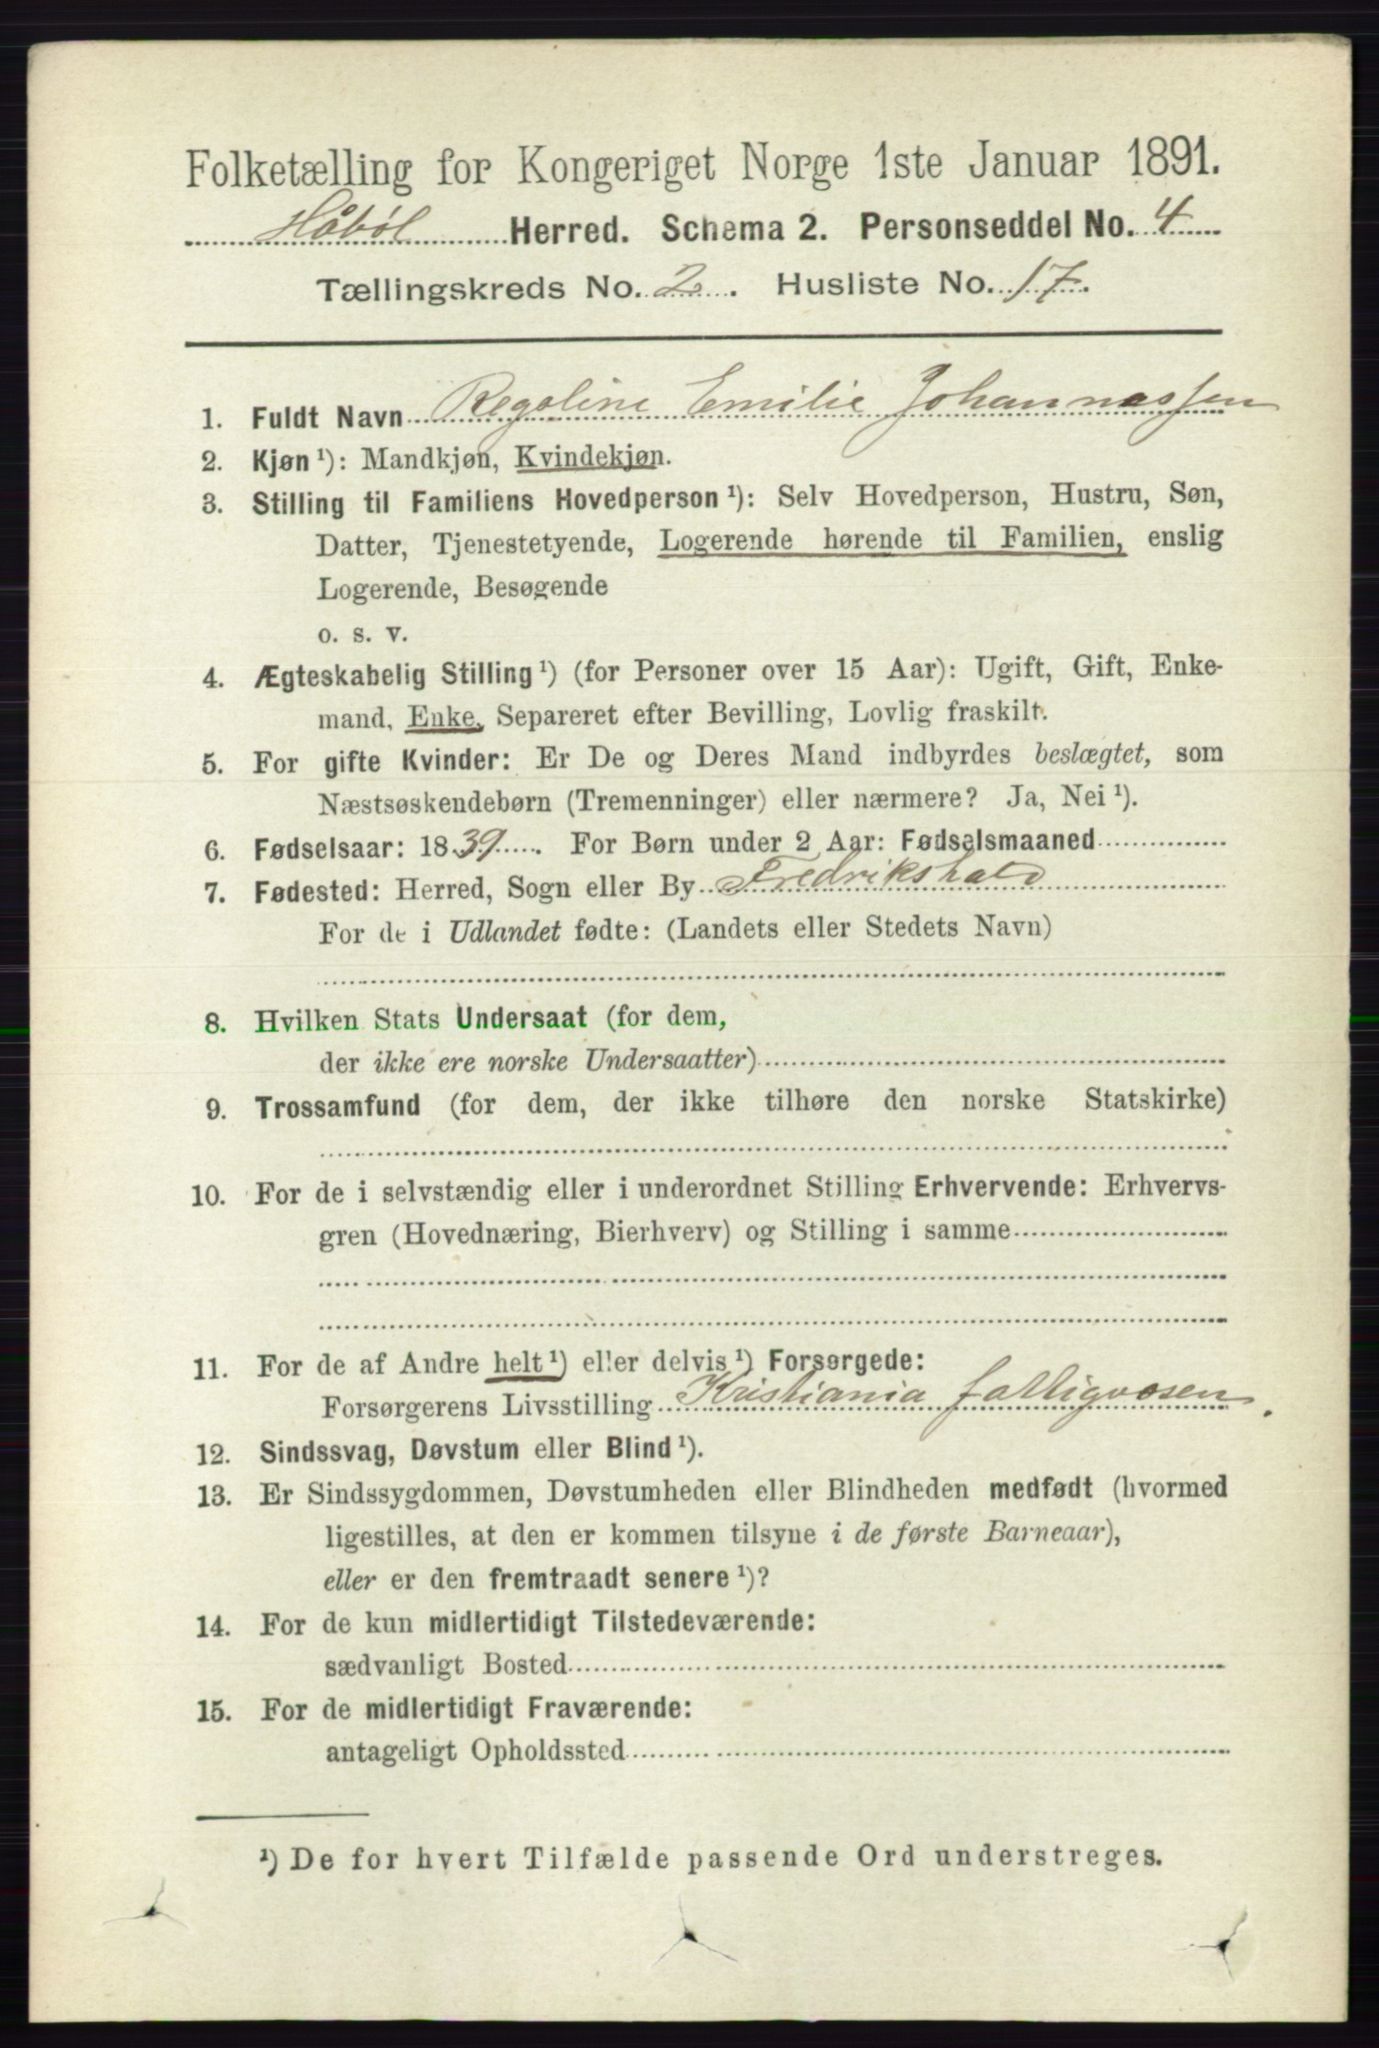 Folketælling for Kongeriget Norge 1ste Januar 1891.
Håbøl Herred. Schema 2. Personseddel No. 4
Tællingskreds No. 2. Husliste No. 17.
1. Fuldt Navn Regoline Emilie Johannessen
2. Kjøn ¹): Mandkjøn, Kvindekjøn.
3. Stilling til Familiens Hovedperson ¹): Selv Hovedperson, Hustru, Søn,
Datter, Tjenestetyende, Logerende hørende til Familien, enslig
Logerende, Besøgende
o. s. v.
4. Ægteskabelig Stilling ¹) (for Personer over 15 Aar): Ugift, Gift, Enke-
mand, Enke, Separeret efter Bevilling, Lovlig fraskilt.
5. For gifte Kvinder: Er De og Deres Mand indbyrdes beslægtet, som
Næstsøskendebørn (Tremenninger) eller nærmere? Ja, Nei ¹).
6. Fødselsaar: 1839. For Børn under 2 Aar: Fødselsmaaned
7. Fødested: Herred, Sogn eller By Fredrikshald
For de i Udlandet fødte: (Landets eller Stedets Navn)
8. Hvilken Stats Undersaat (for dem,
der ikke ere norske Undersaatter)
9. Trossamfund (for dem, der ikke tilhøre den norske Statskirke)
10. For de i selvstændig eller i underordnet Stilling Erhvervende: Erhvervs-
gren (Hovednæring, Bierhverv) og Stilling i samme
11. For de af Andre helt ¹) eller delvis ¹) Forsørgede:
Forsørgerens Livsstilling Kristiania fattigvæsen.
12. Sindssvag, Døvstum eller Blind ¹).
13. Er Sindssygdommen, Døvstumheden eller Blindheden medfødt (hvormed
ligestilles, at den er kommen tilsyne i de første Barneaar),
eller er den fremtraadt senere ¹)?
14. For de kun midlertidigt Tilstedeværende:
sædvanligt Bosted
15. For de midlertidigt Fraværende:
antageligt Opholdssted
¹) De for hvert Tilfælde passende Ord understreges.